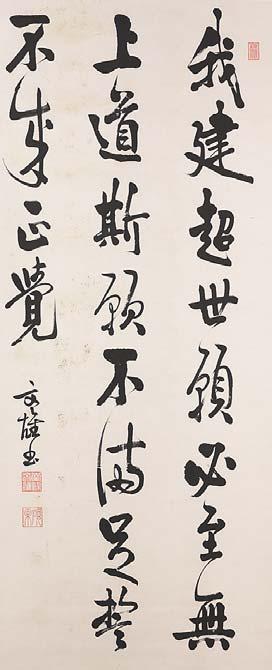 我建超世願必至無
上道斯願不満足誓
不成正覺
文雄書